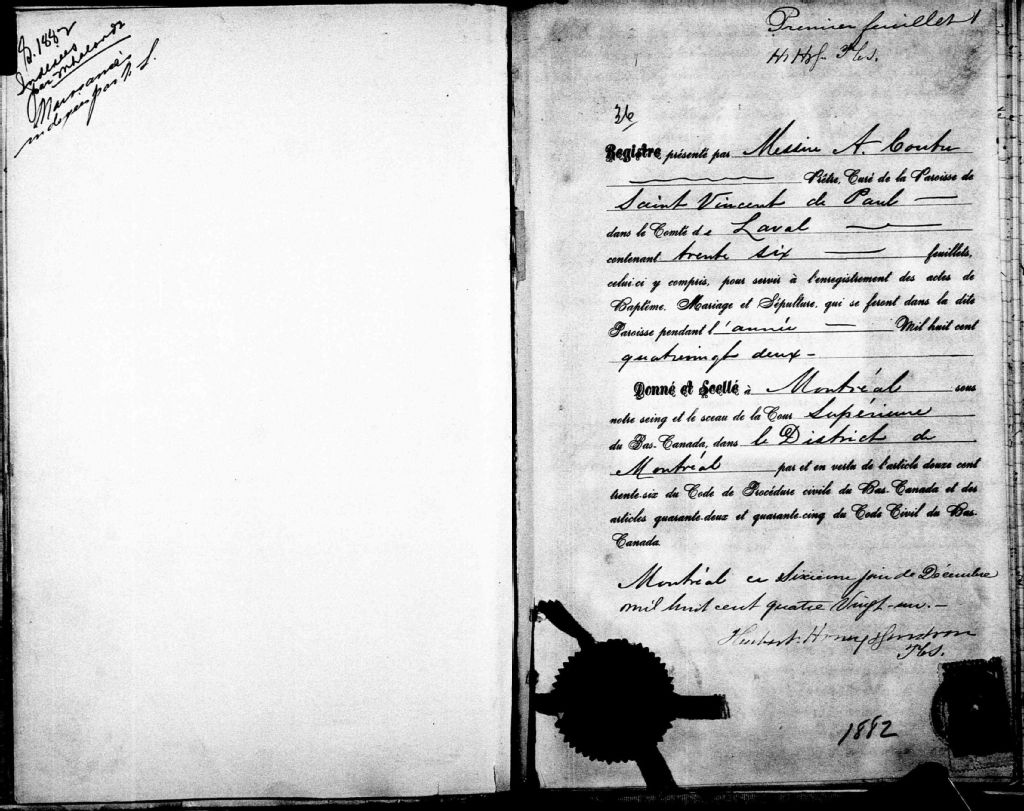 B. 1882
Indexées
par
Naissances
index par
Premier feuillet 1
36
Registre présenté par Messire A. Coutu
Prêtre, Curé de la Paroisse de
Saint Vincent de Paul —
dans le Comté de Laval —
contenant trente six — feuillets,
celui-ci y compris, pour servir à l'enregistrement des actes de
Baptême, Mariage et Sépulture, qui se feront dans la dite
Paroisse pendant l'année — Mil huit cent
quatrevingt deux -
Donné et Scellé à Montréal sous
notre seing et le sceau de la Cour Supérieure
du Bas-Canada, dans le District de
Montréal par et en vertu de l'article douze cent
trente-six du Code de Procédure civile du Bas-Canada et des
articles quarante-deux et quarante-cinq du Code Civil du Bas-
Canada.
Montréal ce Sixieme jour de Décembre
mil huit cent quatre Vingt-un. —
1882